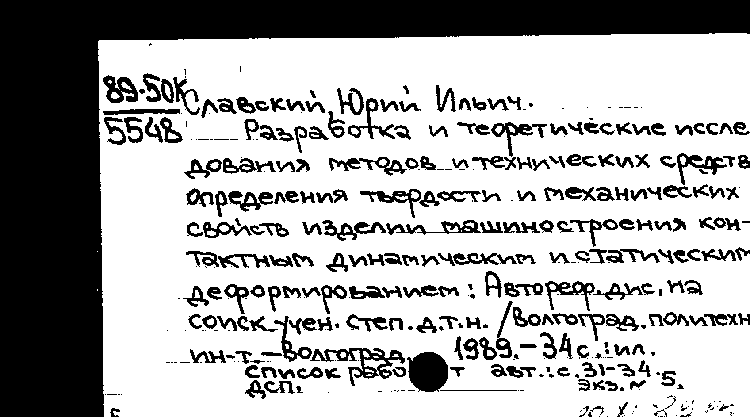 89-50К Славский, Юрий Ильич.
5548 Разработка и теоретические иссле
дования методов и технических средств
определения твердости и механических
свойств изделий машиностроения кон-
тактным динамическим и статическим
деформированием : Автореф. дис. на
соиск. учен. степ. д.т.н. / Волгоград. политехн
ин-т. – Волгоград, 1989. – 34 с. : ил.
Список работ авт.: с. 31-34.
ДСП. экз. № 5.